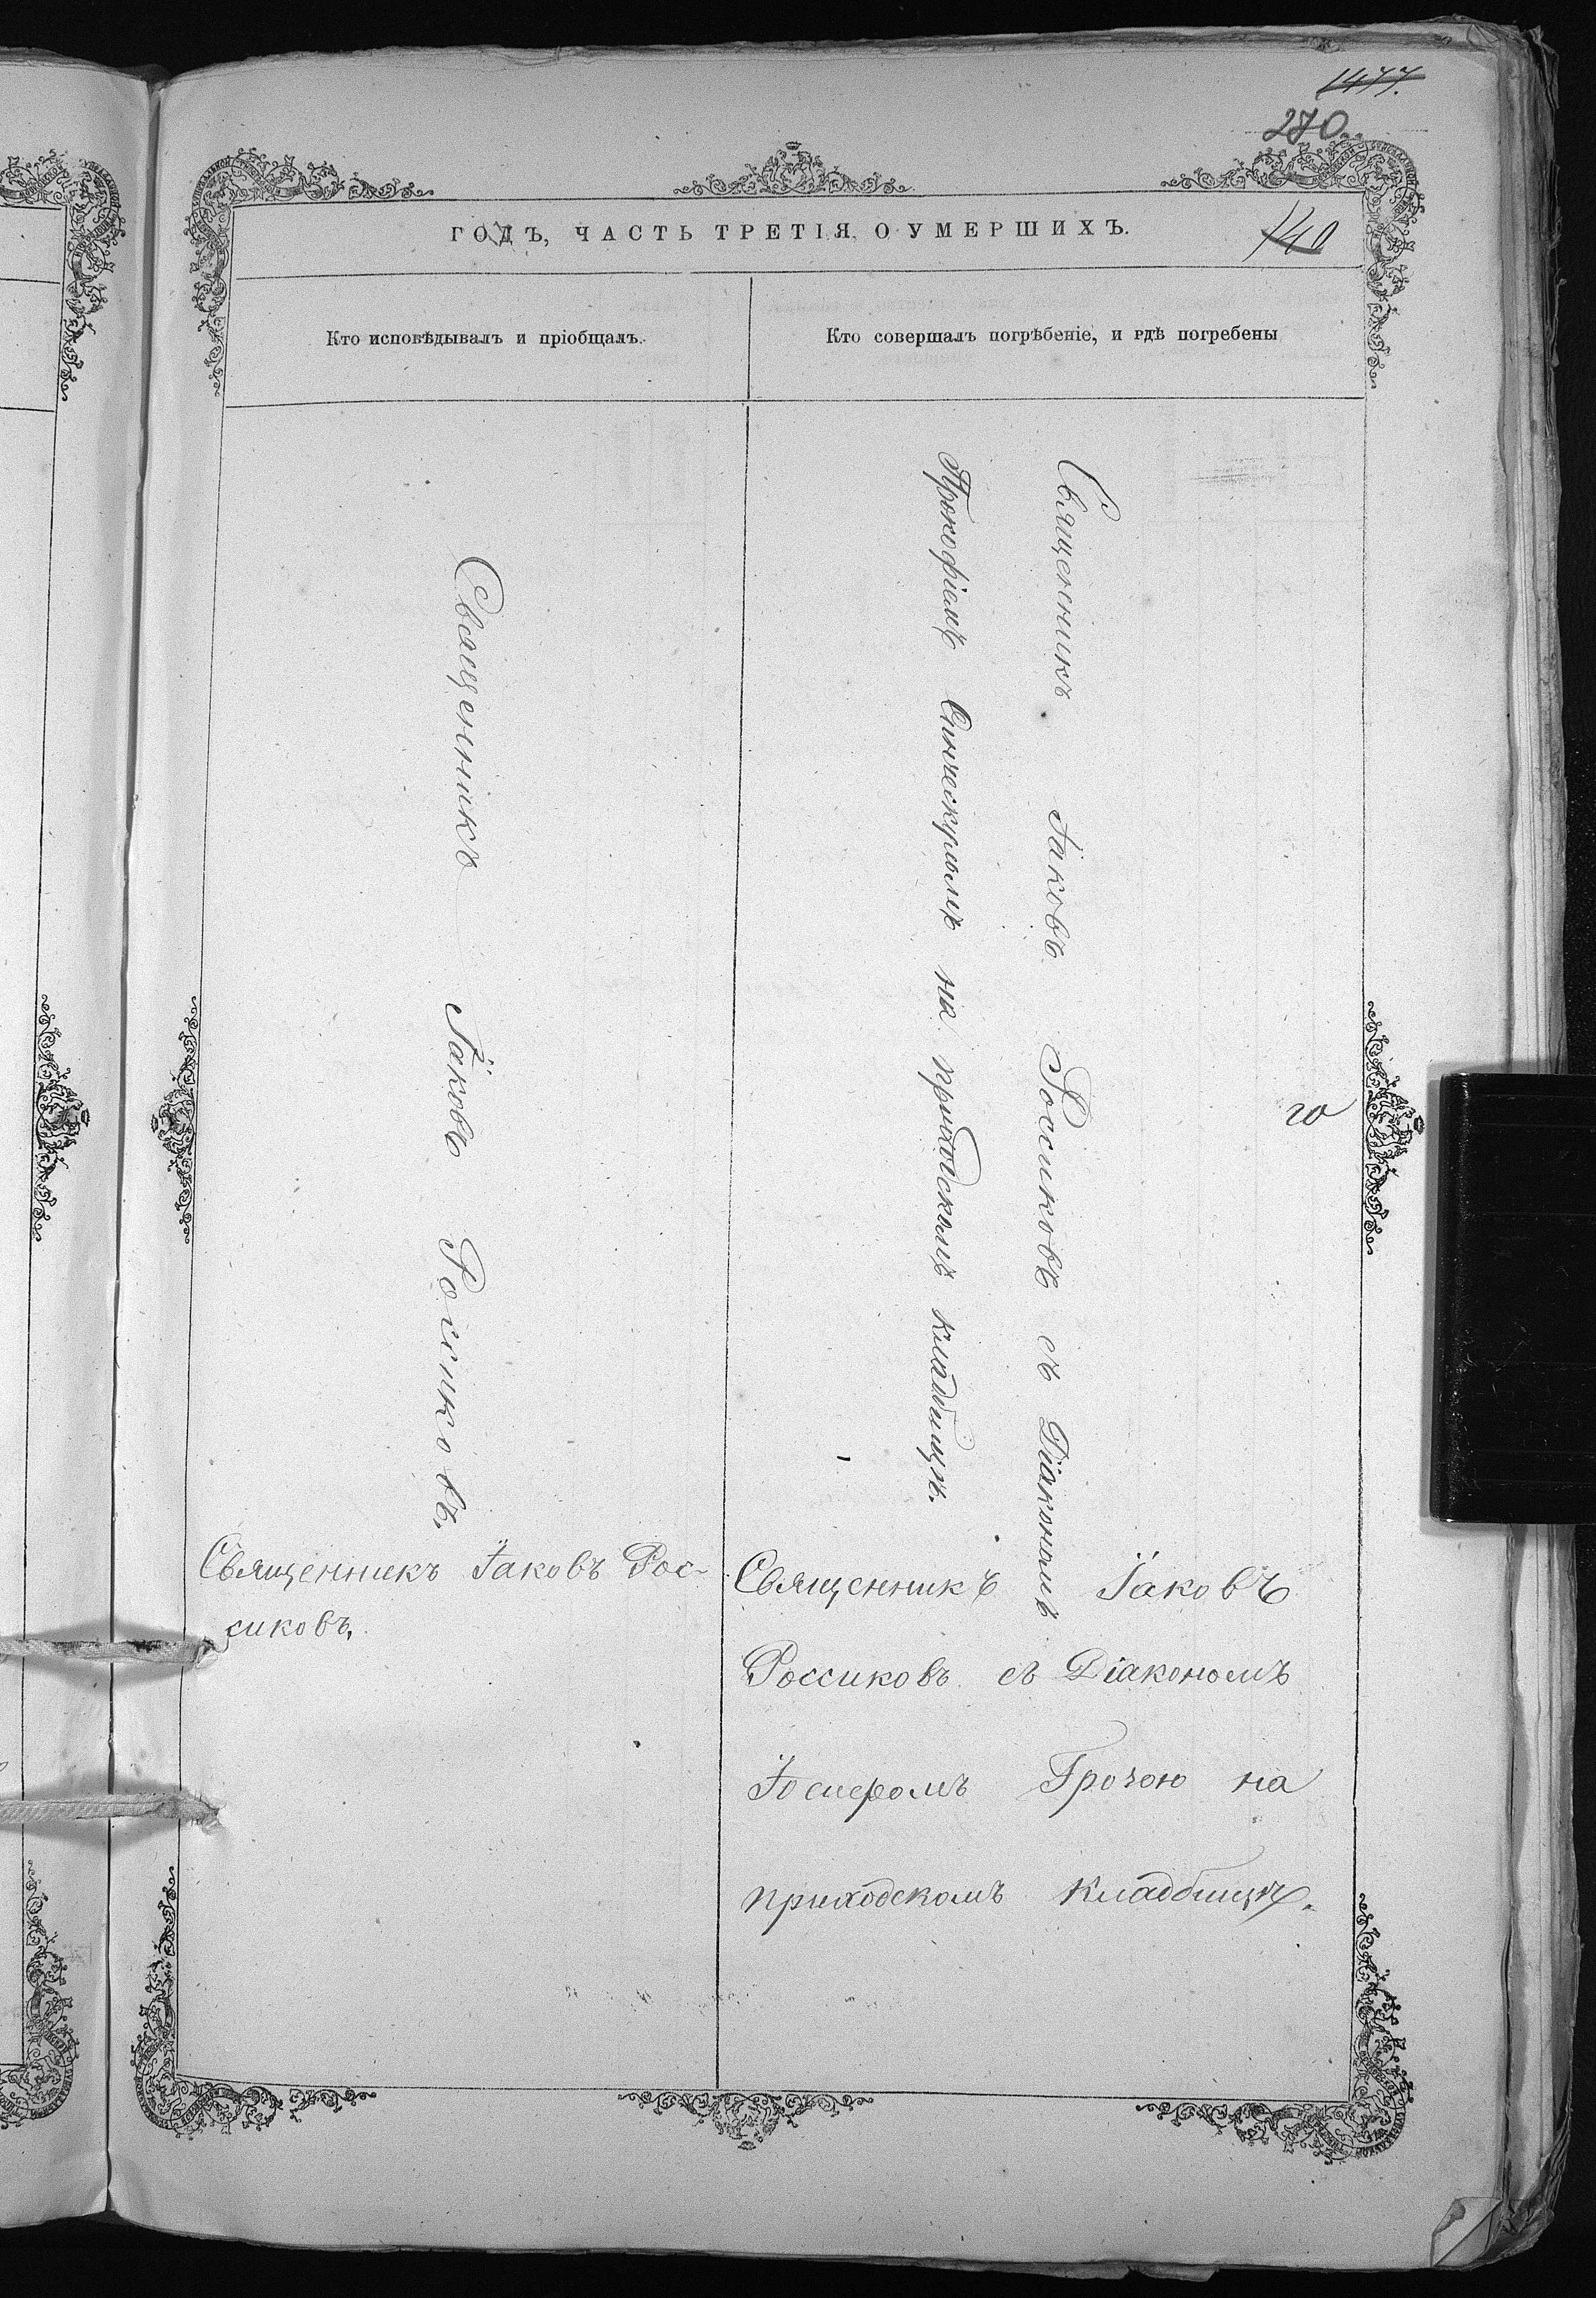 1477.
270.
ГОДЪ, ЧАСТЬ ТРЕТІЯ О УМЕРШИХЪ.
140
Кто исповѣдывалъ и пріобщалъ.
Кто совершалъ погрѣбеніе, и гдѣ погребены
Священникъ Іаковъ Россиковъ.
Священникъ Іаковъ Россиковъ съ Діакономъ
Прокофіемъ на приходскомъ кладбищѣ.
Священникъ Іаковъ Рос-
сиковъ.
Священникъ Іаковъ
Россиковъ съ Діакономъ
Іосифомъ Грозою на
приходскомъ кладбищѣ.